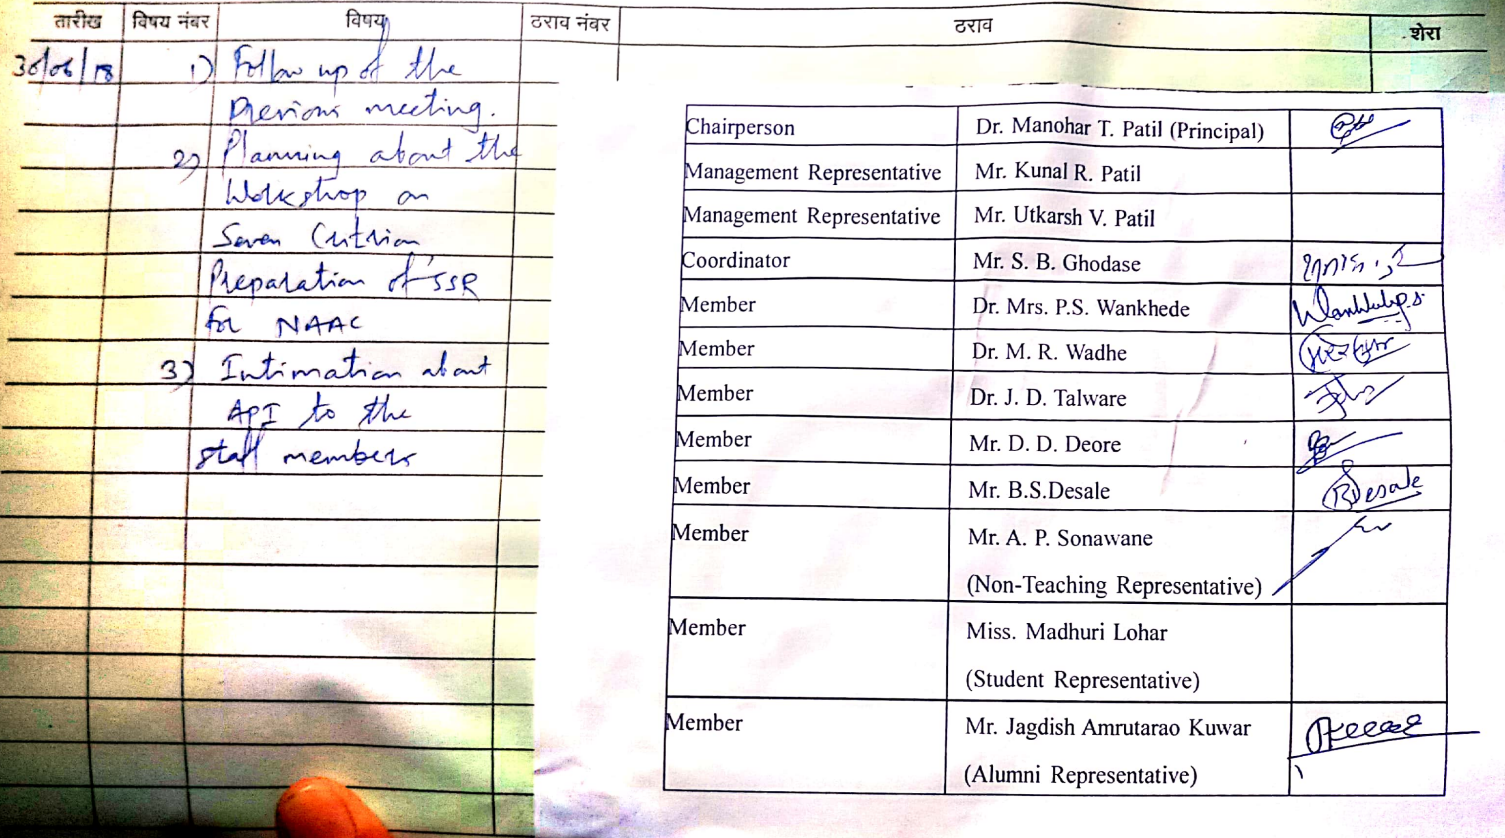 तारीख विषय नंबर विषय ठराव नंबर ठराव शेरा
30/06/18 1) Follow up of the
Previous meeting.
2) Planning about the
Workshop on
Seven Critrion
Preparation of SSR
for NAAC
3) Intimation about
API to the
staff members
Chairperson Dr. Manohar T. Patil (Principal)
Management Representative Mr. Kunal R. Patil
Management Representative Mr. Utkarsh V. Patil
Coordinator Mr. S. B. Ghodase
Member Dr. Mrs. P.S. Wankhede
Member Dr. M. R. Wadhe
Member Dr. J. D. Talware
Member Mr. D. D. Deore
Member Mr. B.S.Desale
Member Mr. A. P. Sonawane
(Non-Teaching Representative)
Member Miss. Madhuri Lohar
(Student Representative)
Member Mr. Jagdish Amrutarao Kuwar
(Alumni Representative)